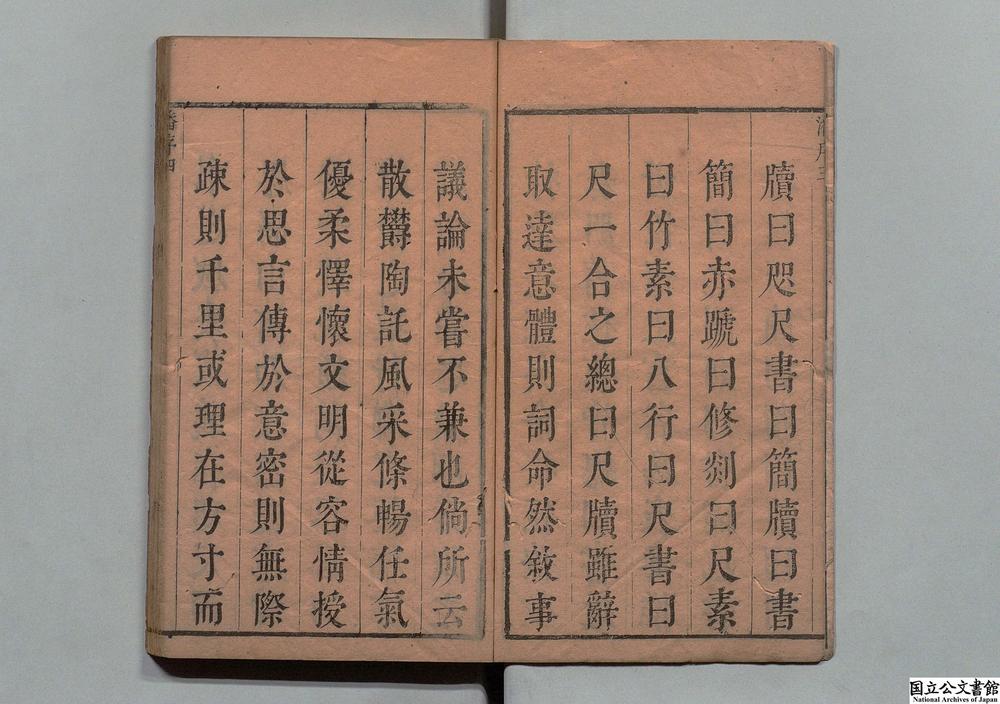 牘曰咫尺書曰簡牘曰書
簡曰赤蹏曰修剡曰尺素
曰竹素曰八行曰尺書曰
尺一合之總曰尺牘雖辭
取達意體則詞命然敘事
議論未嘗不兼也倘所云
散欝陶託風采條暢任氣
優柔懌懷文明從容情授
於思言傳於意密則無際
疎則千里或理在方寸而
潘序四
国立公文書館
National Archives of Japan